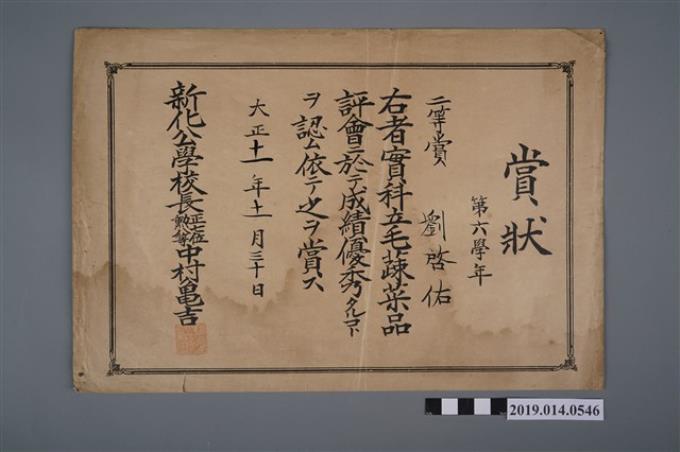 賞狀
第六學年
劉啓佑
二等賞
右者實科立毛蔬菜品
評會ニ於テ成績優秀タルコト
ヲ認ム依テ之ヲ賞ス
大正十一年十一月三十日
新化公學校長正七位勲六等中村亀吉
2019.014.0546